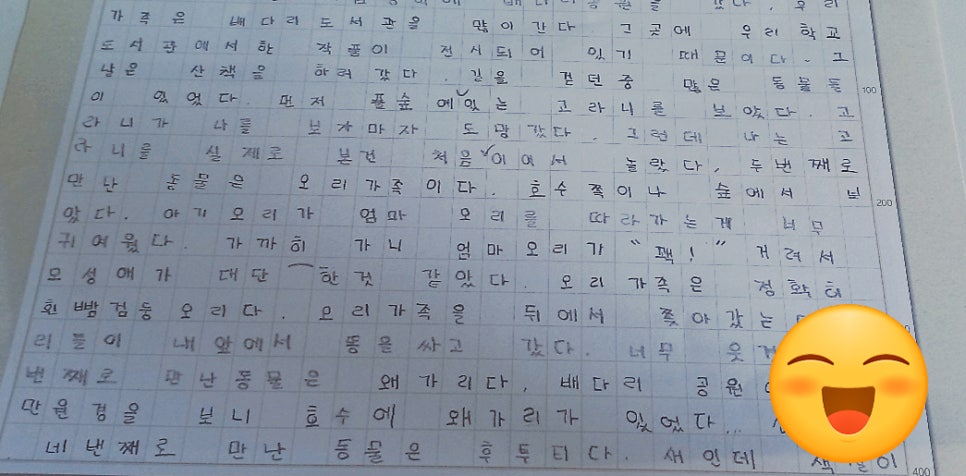 가족은 배다리도서관을 많이 간다. 그곳에 우리 학교
도서관에서 한 작품이 전시되어 있기 때문이다. 그
날은 산책을 하러 갔다. 길을 걷던중 많은 동물들
100
이 있었다. 먼저 풀숲에 있는 고라니를 보았다. 고
라니가 나를 보자마자 도망갔다. 그런데 나는 고
라니를 실제로 본건 처음이여서 놀랐다. 두번째로
만난 동물은 오리가족이다. 호수쪽이나 숲에서
200
았다. 아기오리가 엄마 오리를 따라가는게 너무
귀여웠다. 가까히 가니 엄마오리가 "꽥!" 거려서
모성애가 대단한것 같았다. 오리가족은 정확히
흰뺨검둥오리다. 오리가족을 뒤에서 쫓아갔는
리들이 내앞에서 똥을 싸고 갔다. 너무
번째로 만난동물은 왜가리다. 배다리 공원
만원경을 보니 호수에 왜가리가 있었다...
네번째로 만난 동물은 후투티다. 새인데
400